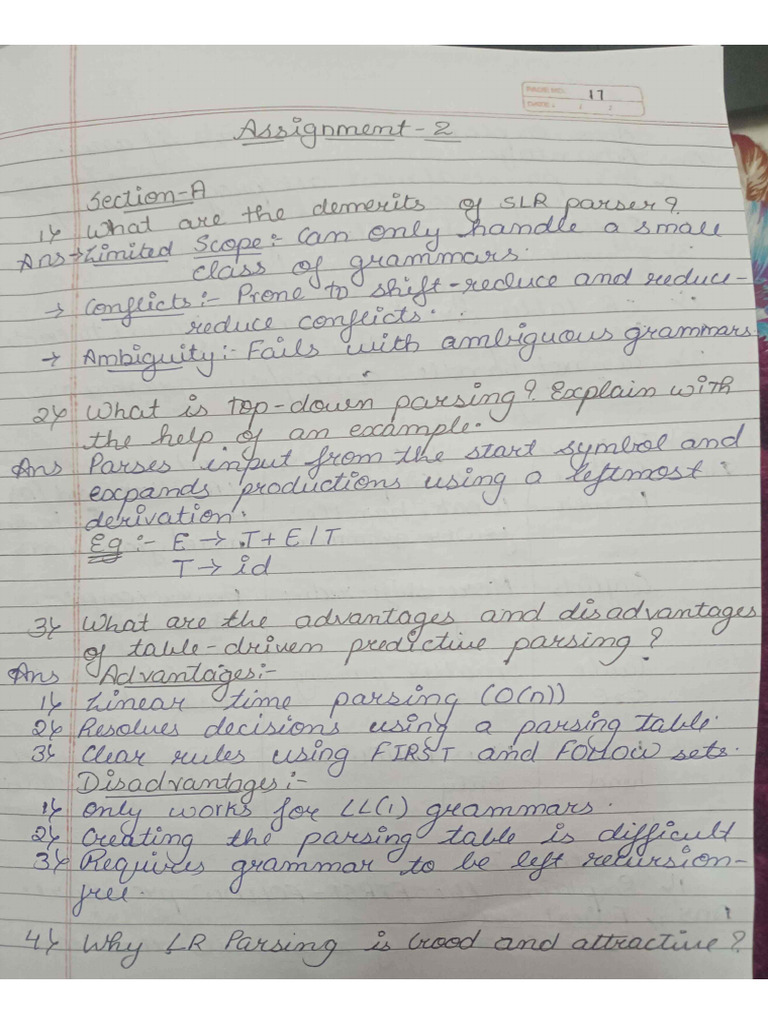 PAGE NO. 17
DATE : / /
Assignment - 2
Section-A
1) What are the demerits of SLR parser?
Ans → Limited Scope:- Can only handle a small
class of grammars.
→ Conflicts:- Prone to shift-reduce and reduce-
reduce conflicts.
→ Ambiguity:- Fails with ambiguous grammars
2) What is top-down parsing? Explain with
the help of an example.
Ans Parses input from the start symbol and
expands productions using a leftmost
derivation.
Eg :- E → T + E / T
T → id
3) What are the advantages and disadvantages
of table-driven predictive parsing?
Ans Advantages:-
1) Linear time parsing (O(n))
2) Resolves decisions using a parsing table.
3) Clear rules using FIRST and FOLLOW sets.
Disadvantages:-
1) Only works for LL(1) grammars.
2) Creating the parsing table is difficult
3) Requires grammar to be left recursion-
free.
4) Why LR Parsing is Good and attractive?